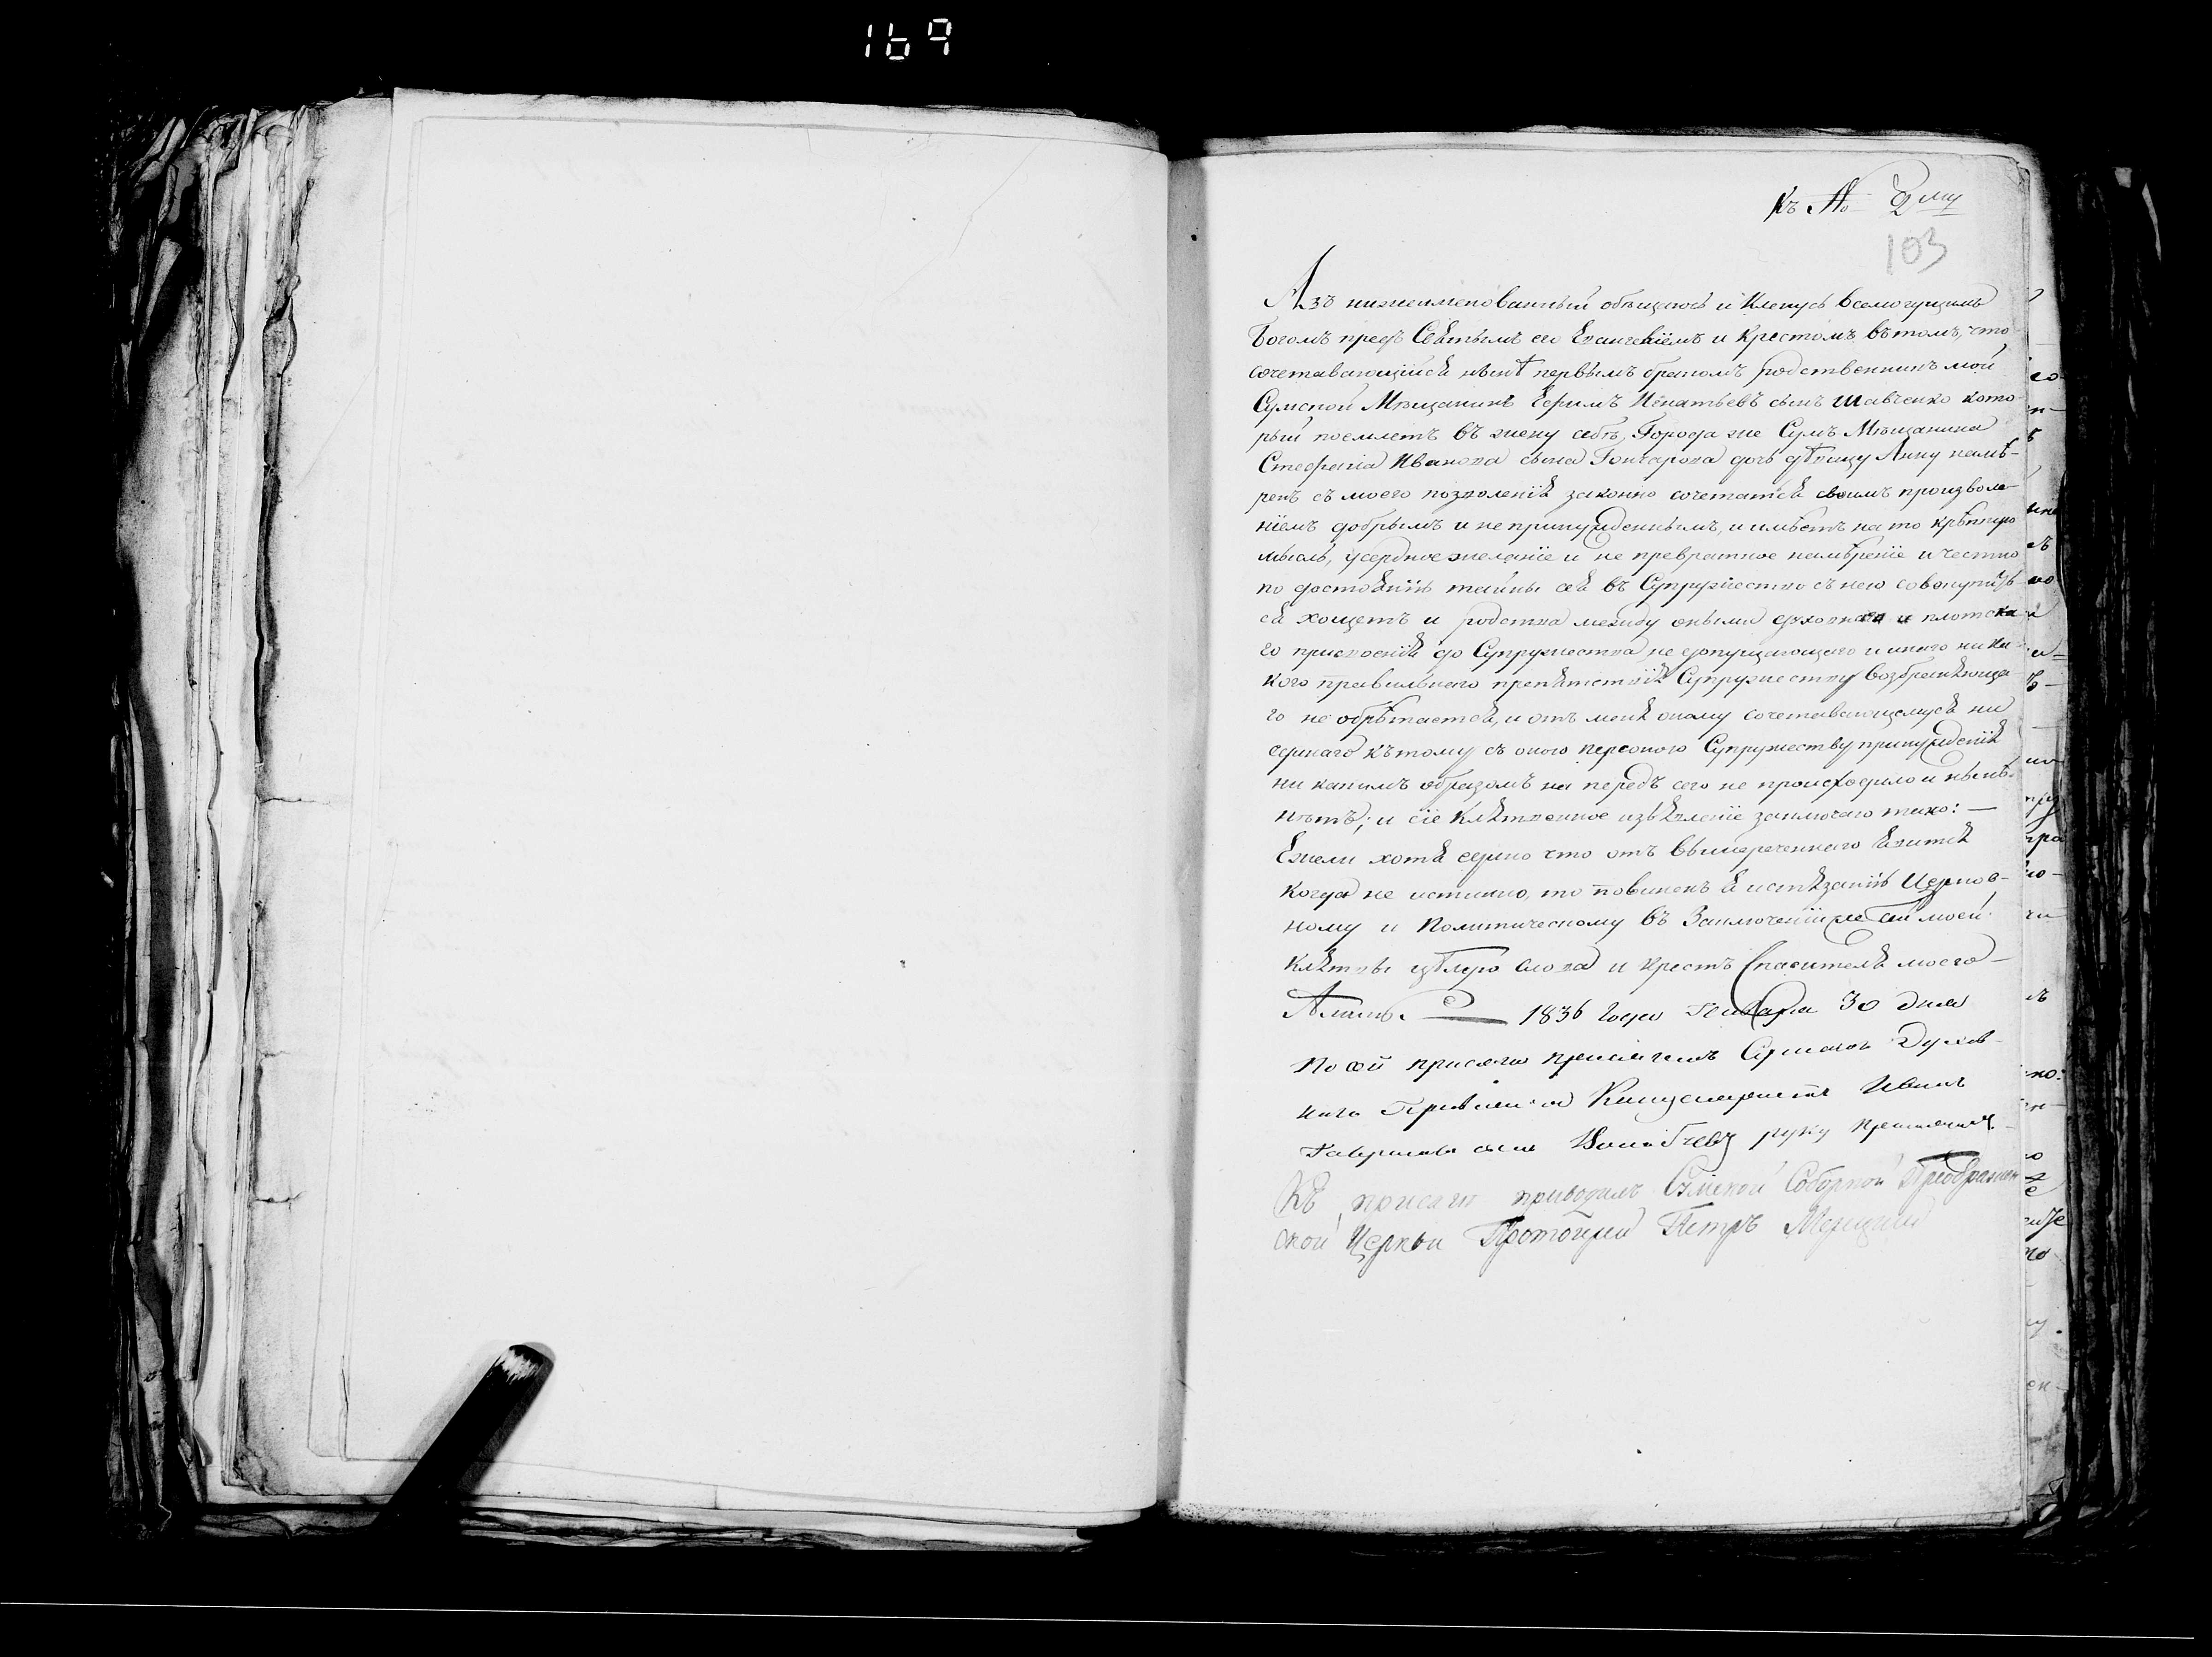 169
Къ № 2му
103
Азъ нижеименованный обѣщаюсь и Кленусь Всемогущимъ
Богомъ предъ Святымъ его Евангеліемъ и Крестомъ въ томъ, что
сочетавающійся нынѣ первымъ бракомъ родственникъ мой
Сумской Мѣщанинъ Ефимъ Игнатьевъ сынъ Шавченко кото-
рый поемлетъ въ жену себѣ, Города же Сумъ Мѣщанина
Стефана Иванова сына Гончарова дочь дѣвицу Анну намѣ-
ренъ съ моего позволенія законно сочетатся своимъ произволе-
ніемъ добрымъ и не принужденнымъ, и имѣетъ на то крѣпкую
мысль, усердное желаніе и не превратное намѣреніе и честно
по достоянію тайны сея въ Супружество съ нею совокупить
ся хощетъ и родства между оными духовнаго и плотска-
го присвоенія до Супружества не допущающаго и инаго ника-
кого правильнаго препятствія Супружеству возбраняюща-
го не обрѣтается, и отъ меня оному сочетавающемуся ни
единаго къ тому съ оною персоною Супружеству принужденія
ни какимъ образомъ на передъ сего не происходило и нынѣ
нѣтъ; и сіе Клятвенное извѣленіе заключаю тако: —
Ежели хотя едино что отъ вышереченнаго явится
когда не истинно, то повиненъ я истязанію Церков-
ному и Политическому въ Заключеніи же сей моей
клятвы цѣлую слова и крестъ Спасителя моего —
Аминь. 1836 года Генваря 30 дня
По сей присяги присягалъ Сумскаго Духов-
наго Правленія Канцеляристъ Иванъ
Гавриловъ сынъ руку приложилъ
Къ присягѣ приводилъ Сумской Соборной Преображен
ской Церкви Протоіерей Петръ